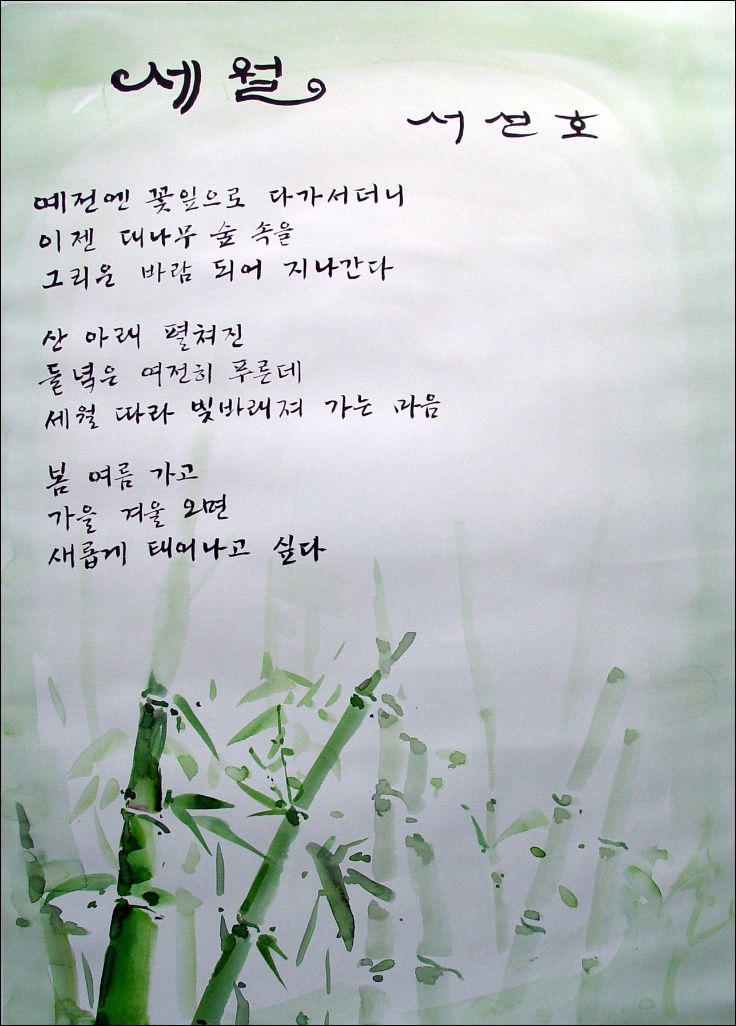 세월
서선호
예전엔 꽃잎으로 다가서더니
이젠 대나무 숲 속을
그리운 바람 되어 지나간다
산 아래 펼쳐진
들녘은 여전히 푸른데
세월 따라 빛바래져 가는 마음
봄 여름 가고
가을 겨울 오면
새롭게 태어나고 싶다